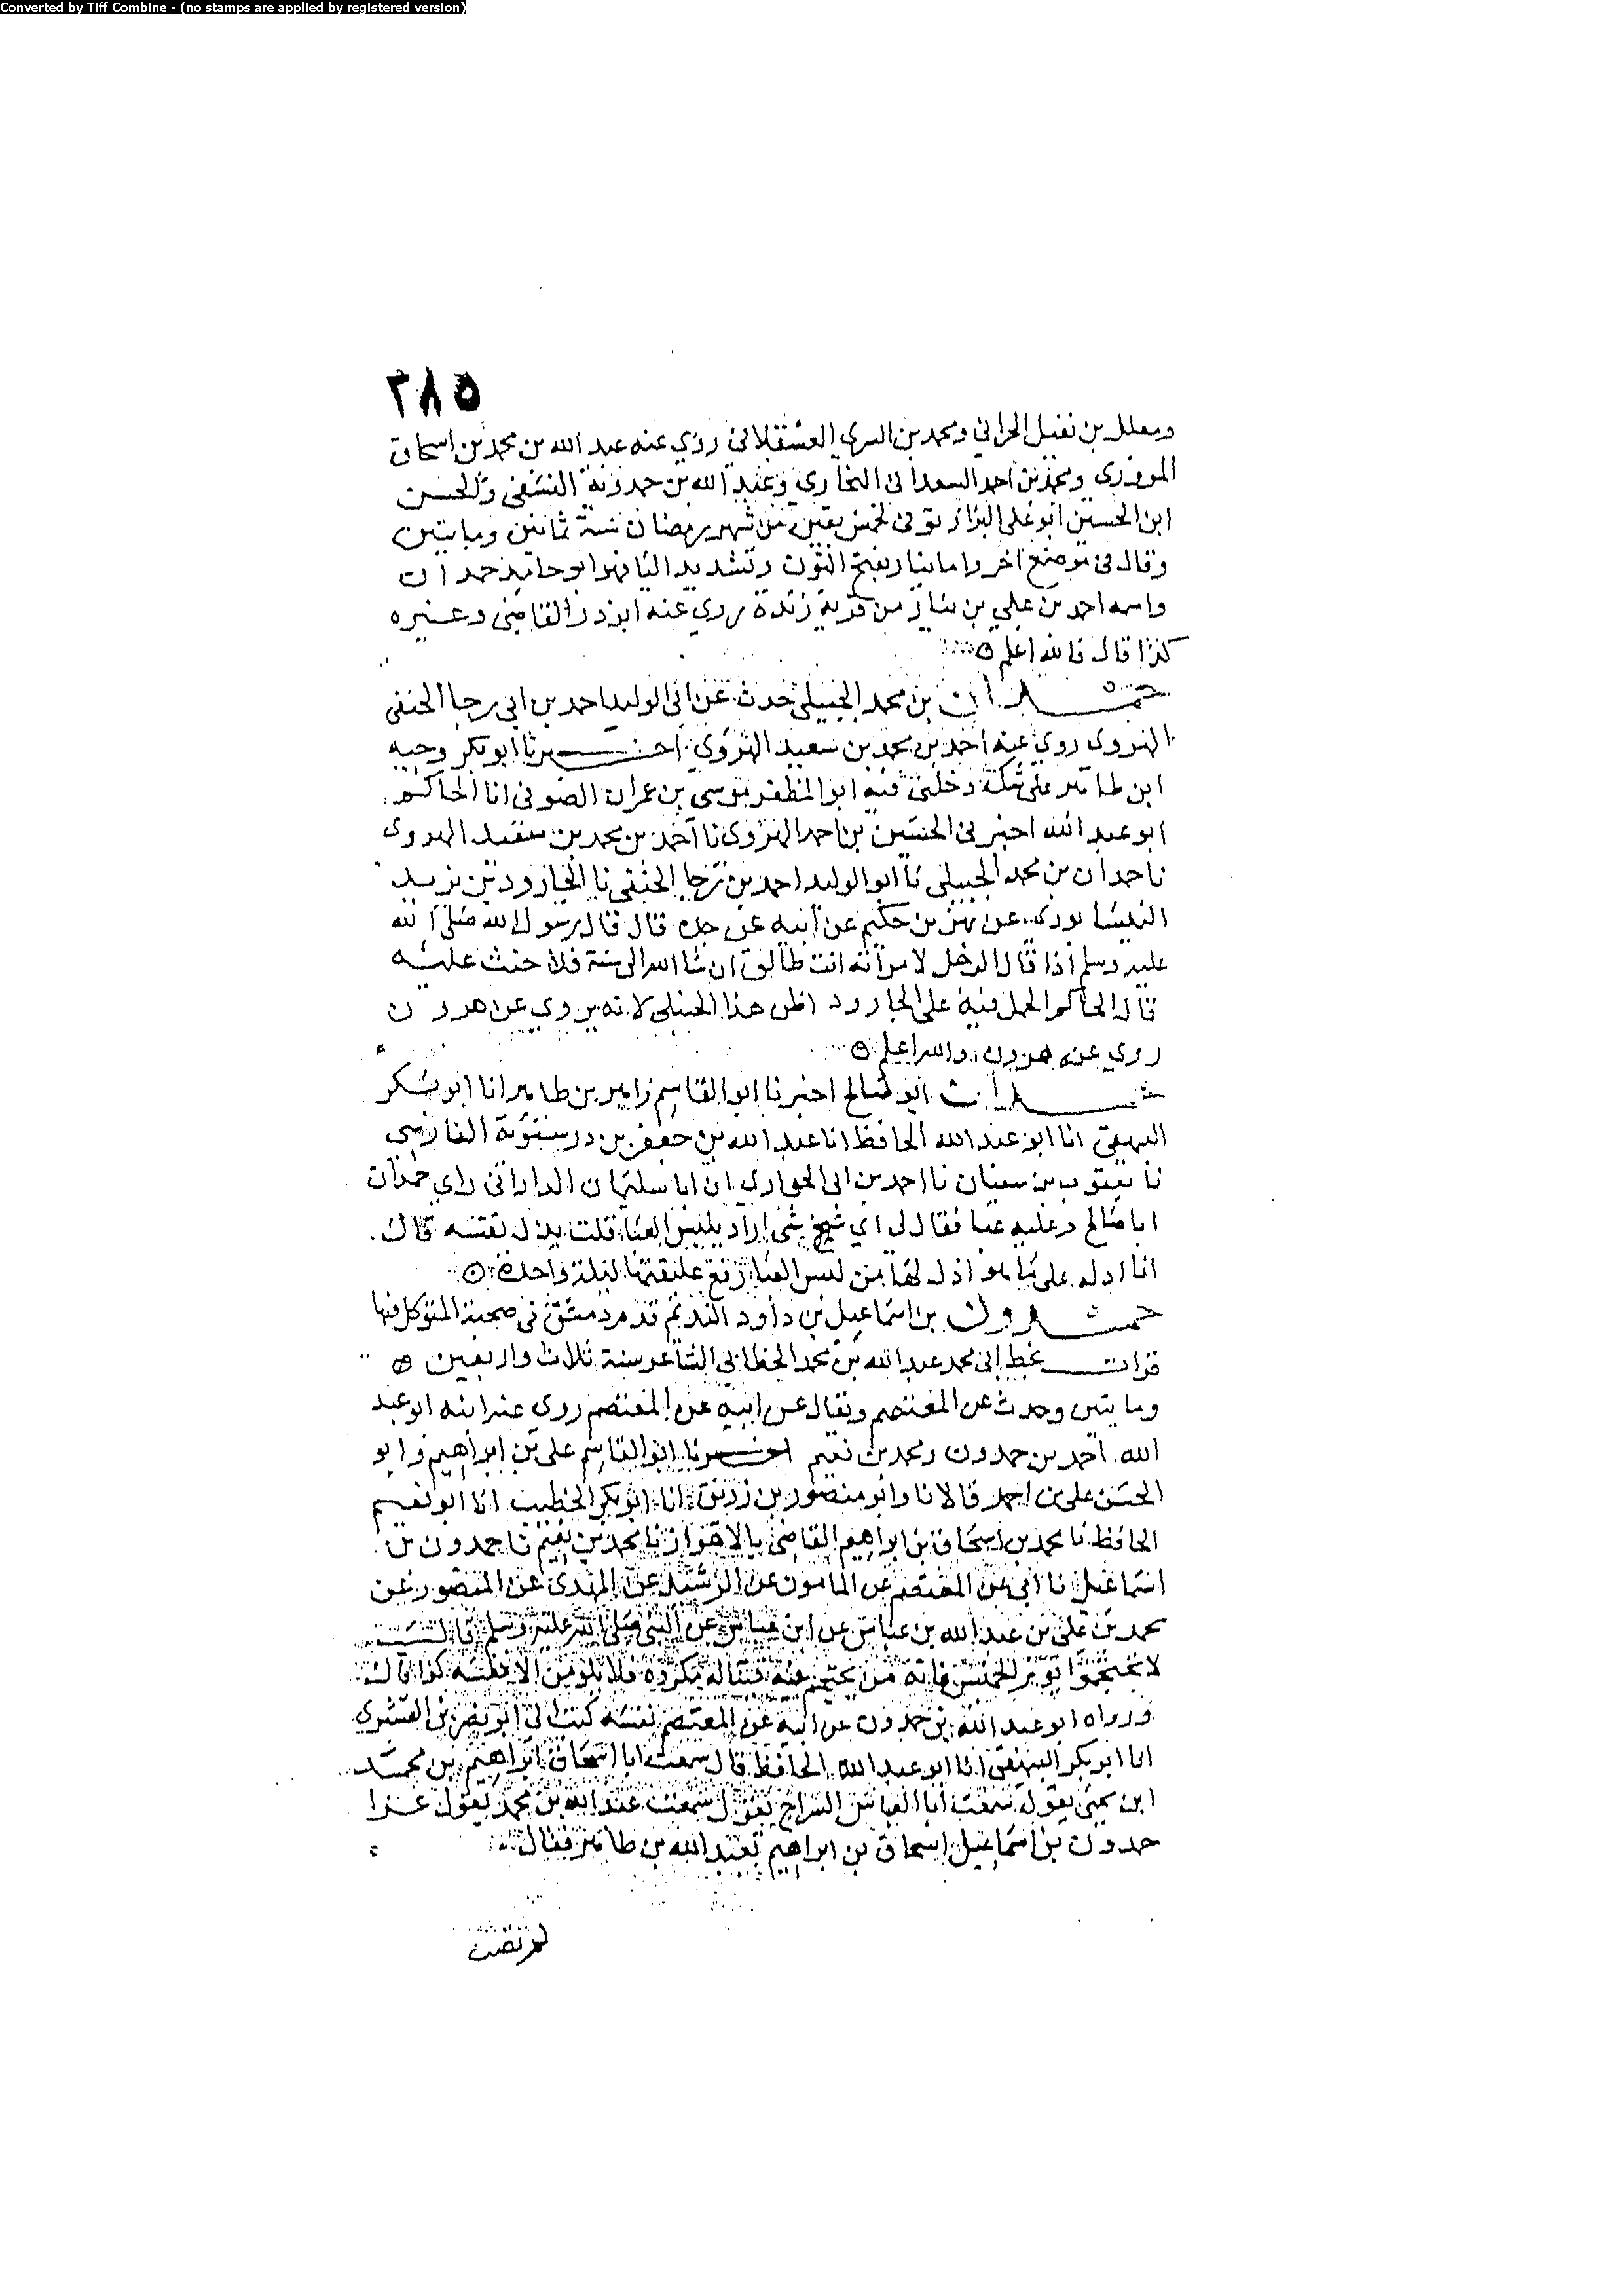 Converted by Tiff Combine - (no stamps are applied by registered version)
٣٨٥
ومعلل بن نفيل الحراني ومحمد بن السري العسقلاني روي عنه عبد الله بن محمد بن اسحاق
المروزي ومحمد بن احمد السعداني البخاري وعبد الله بن حمدونة النسفي والحسن
ابن الحسين ابو علي البزاز توفى لخمس بقين من شهر رمضان سنة ثمانين ومايتين
وقال في موضع اخر واما نيار بفتح النون وتشديد اليا فهو ابو حامد حمدان
واسمه احمد بن علي بن نيار من قرية زندة روي عنه ابو ذر القاضي وغيره
كذا قال فالله اعلم
حمدان بن محمد الجبيلي حدث عن ابي الوليد احمد بن ابي رجا الحنفي
الهروي روي عنه احمد بن محمد بن سعيد الهروي اخبرنا ابو بكر وجيه
ابن طاهر على شكة دخلني فيه ابو المظفر موسى بن عمران الصوفي انا الحاكم
ابو عبد الله اخبرني الحسين بن احمد الهروي نا احمد بن محمد بن سعيد الهروي
نا حمدان بن محمد الجبيلي نا ابو الوليد احمد بن رجا الحنفي نا الجارود بن يزيد
النيسابوري عن بهز بن حكيم عن ابيه عن جده قال قال رسول الله صلى الله
عليه وسلم اذا قال الرجل لامراته انت طالق ان شا الله الى سنة فلا حنث عليه
قال الحاكم الحمل فيه على الجارود اظن هذا الجبيلي لانه يروي عن هرون
روي عنه هرون والله اعلم
حمدان ابو صالح اخبرنا ابو القاسم زاهر بن طاهر انا ابو بكر
البيهقي انا ابو عبد الله الحافظ انا عبد الله بن جعفر بن درستويه الفارسي
نا يعقوب بن سفيان نا احمد بن ابي الحواري ان ابا سليمان الداراني راي حمدان
ابا صالح وعليه عبا فقال لي اي شيخ شي اراد بلبس العبا قلت يذل نفسه قال
انا ادله على ما هو اذل لها من لبس العبا رفع عليقتها ليلة واحدة
حمدون بن اسماعيل بن داود النديم قدم دمشق في صحبة المتوكل فيما
قرات بخط ابي محمد عبد الله بن محمد الخطابي الشاعر سنة ثلاث واربعين
ومايتين وحدث عن المعتصم ويقال عن ابيه عن المعتصم روى عنه ابنه ابو عبد
الله احمد بن حمدون ومحمد بن نعيم اخبرنا ابو القاسم علي بن ابراهيم وابو
الحسن علي بن احمد قالا نا وابو منصور بن زريق انا ابو بكر الخطيب انا ابو نعيم
الحافظ نا محمد بن اسحاق بن ابراهيم القاضي بالاهواز نا محمد بن نعيم نا حمدون بن
اسماعيل نا ابي عن المعتصم عن المامون عن الرشيد عن المهدي عن المنصور عن
محمد بن علي بن عبد الله بن عباس عن ابن عباس عن النبي صلى الله عليه وسلم قال
لا تحتجموا يوم الخميس فانه من يحتجم فيه فيناله مكروه فلا يلومن الا نفسه كذا قال
ورواه ابو عبد الله بن حمدون عن ابيه عن المعتصم نفسه كتب الى ابو نصر بن القشيري
انا ابو بكر البيهقي انا ابو عبد الله الحافظ قال سمعت ابا اسحاق ابراهيم بن محمد
ابن يحيى يقول سمعت ابا العباس السراج يقول سمعت عبد الله بن محمد يقول عزا
حمدون بن اسماعيل اسحاق بن ابراهيم بعبد الله بن طاهر فقال